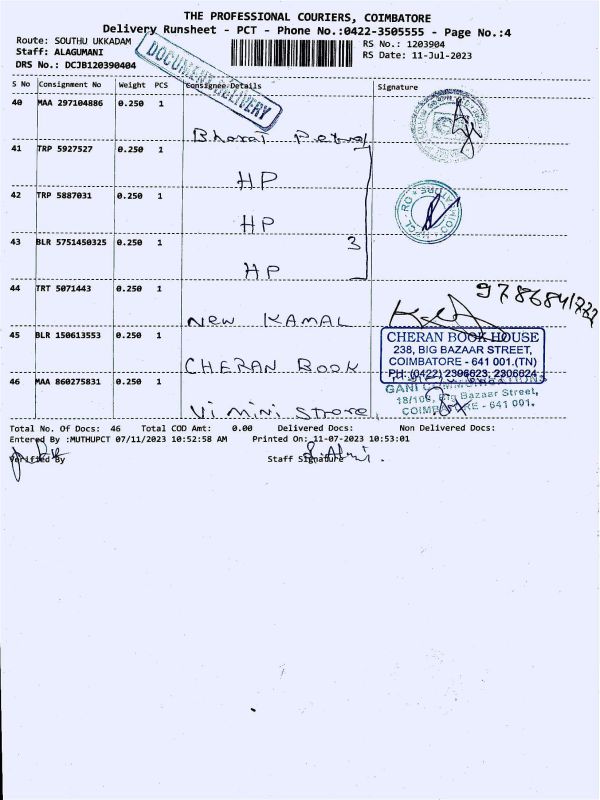 THE PROFESSIONAL COURIERS, COIMBATORE
Delivery Runsheet - PCT - Phone No.:0422-3505555 - Page No.:4
Route: SOUTHU UKKADAM
RS No.: 1203904
Staff: ALAGUMANI
RS Date: 11-Jul-2023
DRS No.: DCJB120390404
DOCUMENT DELIVERY
S No Consignment No Weight PCS Consignee Details Signature
40 MAA 297104886 0.250 1
Bharat Petro
41 TRP 5927527 0.250 1
HP
42 TRP 5887031 0.250 1
HP
43 BLR 5751450325 0.250 1
3
HP
44 TRT 5071443 0.250 1
NEW KAMAL
45 BLR 150613553 0.250 1
CHERAN BOOK
CHERAN BOOK HOUSE
238, BIG BAZAAR STREET,
COIMBATORE - 641 001.(TN)
PH: (0422) 2306623, 2306624
46 MAA 860275831 0.250 1
Vi mini Strore
GANI COMMUNICATIONS
Big Bazaar Street,
COIMBATORE - 641 001.
Total No. Of Docs: 46 Total COD Amt: 0.00 Delivered Docs: Non Delivered Docs:
Entered By :MUTHUPCT 07/11/2023 10:52:58 AM Printed On: 11-07-2023 10:53:01
Verified By Staff Signature